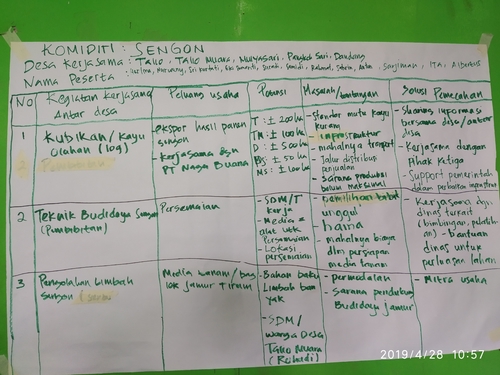 KOMIDITI : SENGON
Desa Kerjasama : Talio, Talio Muara, Mulyasari, Pangkoh Sari, Dandang
Nama Peserta :
No
Kegiatan kerjasama
Antar desa
Peluang usaha
Potensi
Masalah/tantangan
Solusi Pemecahan
1
Kubikan/Kayu
(log)
- ekspor hasil panen
sengon
- kerjasama dgn
PT Naga Buana
T : ± 200 ha
TM : ± 100 ha
D : ± 500 ha
PS : ± 50 ha
MS : ± 100 ha
- standar mutu kayu
kurang
- infrastruktur
- mahalnya transport
- Jalur distribusi
penjualan
- Sarana produksi
belum maksimal
- sharing informasi
bersama desa/antar
desa
- Kerjasama dengan
Pihak Ketiga
- Support pemerintah
dalam perbaikan
2
Teknik Budidaya Sengon
(Pembibitan)
Persemaian
- SDM/T
Kerja
- Media &
alat utk
Persemaian
- Lokasi
persemaian
- pemilihan babat
unggul
- hama
- mahalnya biaya
dlm persiapan
media tanam
- Kerjasama dgn
dinas terkait
(bimbingan, pelatih-
an) - bantuan
dinas untuk
perluasan lahan
3
Pengolahan Limbah
Sengon
Media tanam/bag
log jamur Tiram
- Bahan baku
Limbah ban
yak
- SDM/
warga Desa
Talio Muara
(Rohadi)
- permodalan
- Sarana pendukung
Budidaya jamur
- Mitra usaha
2019/4/28 10:57